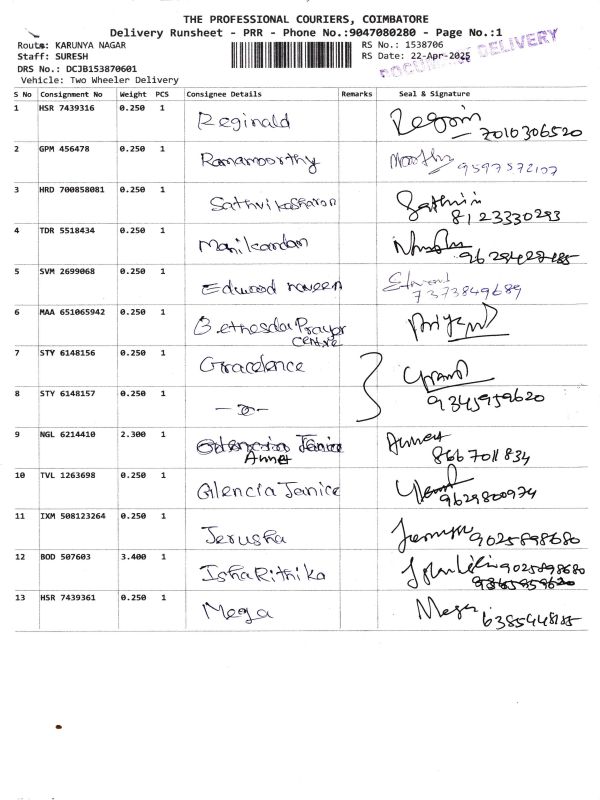 THE PROFESSIONAL COURIERS, COIMBATORE
Delivery Runsheet - PRR - Phone No.:9047080280 - Page No.:1
Route: KARUNYA NAGAR RS No.: 1538706
Staff: SURESH RS Date: 22-Apr-2025
DELIVERY
DRS No.: DCJB153870601
Vehicle: Two Wheeler Delivery
S No Consignment No Weight PCS Consignee Details Remarks Seal & Signature
1 HSR 7439316 0.250 1 Reginald 7010306520
2 GPM 456478 0.250 1 Ramamoorthy 9597572107
3 HRD 700858081 0.250 1 Sathvikasharon 8123330293
4 TDR 5518434 0.250 1 Manikandan
5 SVM 2699068 0.250 1 Edwood naveen 7373849689
6 MAA 651065942 0.250 1 Bethesda Prayer
centre
7 STY 6148156 0.250 1 Gracelence
8 STY 6148157 0.250 1 9345959620
9 NGL 6214410 2.300 1 Janice Annet
Annet 8667011834
10 TVL 1263698 0.250 1 Glencia Janice 9629800974
11 IXM 508123264 0.250 1 Jerusha 9025898680
12 BOD 507603 3.400 1 Isha Rithika 9025898680
13 HSR 7439361 0.250 1 Mega Mega